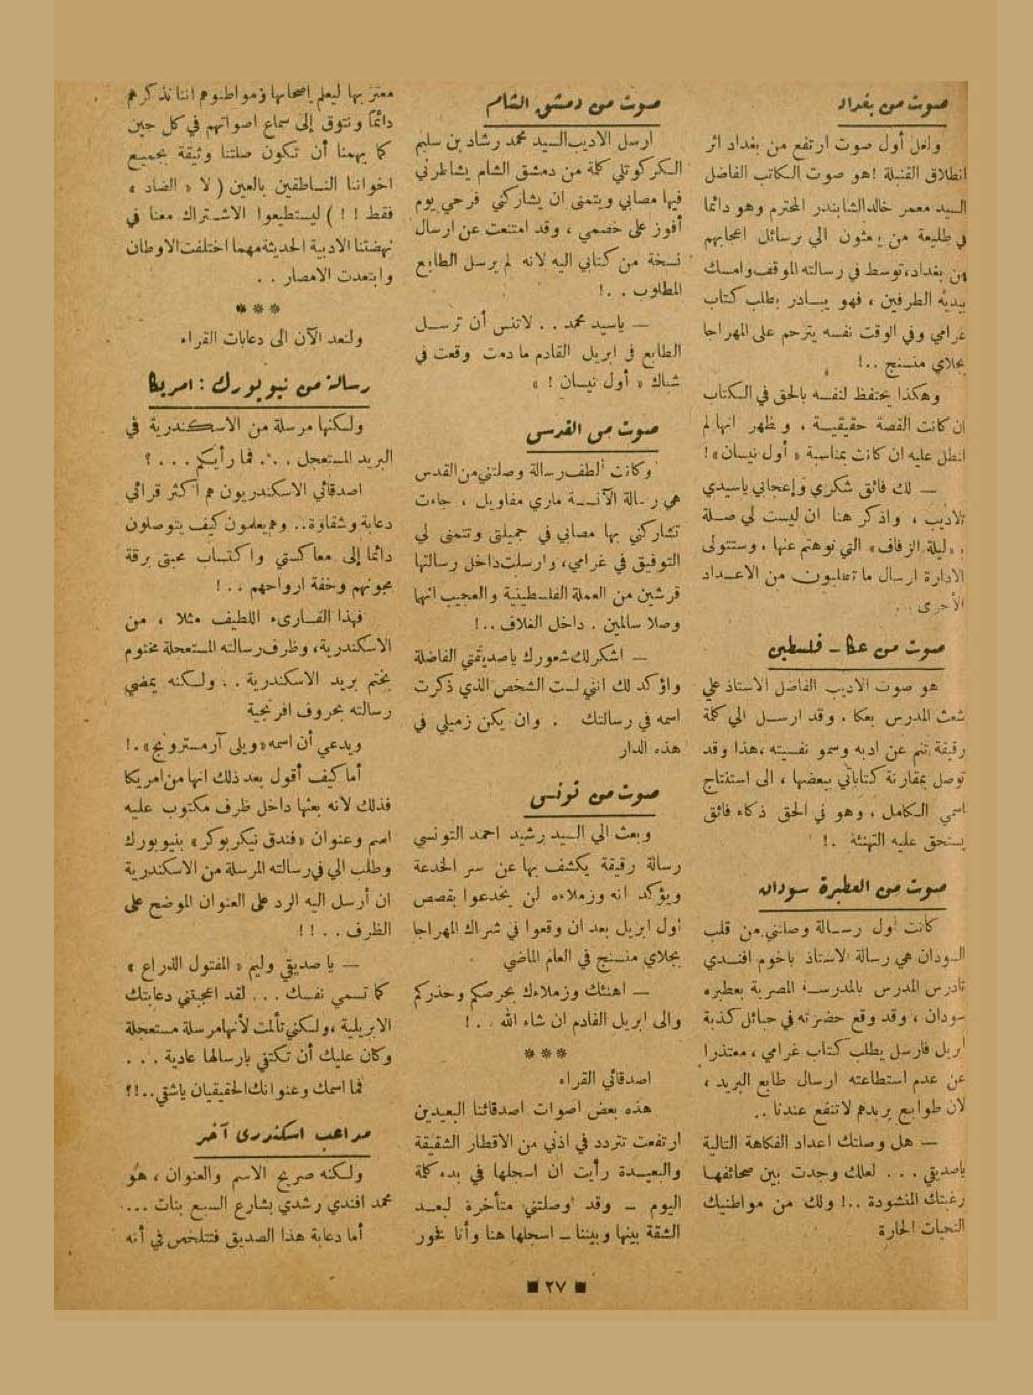 صوت من بغداد
ولعل أول صوت ارتفع من بغداد اثر
انطلاق القنبلة ! هو صوت الكاتب الفاضل
السيد معمر خالد الشابندر المحترم وهو دائما
في طليعة من يبعثون الي برسائل اعجابهم
من بغداد، توسط في رسالته الموقف وامسك
بيديه الطرفين ، فهو يبادر بطلب كتاب
غرامي وفي الوقت نفسه يترحم على المهراجا
بجلاي منسنج ..!
وهكذا يحتفظ لنفسه بالحق في الكتاب
ان كانت القصة حقيقية . ويظهر انها لم
تنطل عليه ان كانت بمناسبة « أول نيسان » !
— لك فائق شكري وإعجابي ياسيدي
الاديب ، واذكر هنا ان ليست لي صلة
« ليلة الزفاف » التي نوهتم عنها ، وستتولى
الادارة ارسال ما تطلبون من الاعداد
الأخرى ..
صوت من عكا – فلسطين
هو صوت الاديب الفاضل الاستاذ علي
شعث المدرس بعكا . وقد ارسل الي كلمة
رقيقة تنم عن ادبه وسمو نفسيته ، هذا وقد
توصل بمقارنة كتاباتي ببعضها ، الى استنتاج
اسمي الكامل ، وهو في الحق ذكاء فائق
يستحق عليه التهنئة .!
صوت من العطبرة سودان
كانت أول رسالة وصلتني من قلب
السودان هي رسالة الاستاذ باخوم افندي
تادرس المدرس بالمدرسة المصرية بعطبره
سودان ، وقد وقع حضرته في حبائل كذبة
ابريل فارسل يطلب كتاب غرامي ، معتذرا
عن عدم استطاعته ارسال طابع البريد ،
لان طوابع بريدهم لا تنفع عندنا ..
— هل وصلتك اعداد الفكاهة التالية
ياصديقي ... لعلك وجدت بين صحائفها
رغبتك المنشودة ..! ولك من مواطنيك
التحيات الحارة
صوت من دمشق الشام
ارسل الاديب السيد محمد رشاد بن سليم
الكركوتلي كلمة من دمشق الشام يشاطرني
فيها مصابي ويتمنى ان يشاركني فرحي يوم
أفوز على خصمي ، وقد امتنعت عن ارسال
نسخة من كتابي اليه لانه لم يرسل الطابع
المطلوب . .!
— ياسيد محمد .. لاتنس أن ترسل
الطابع في ابريل القادم ما دمت وقعت في
شباك « أول نيسان ! »
صوت من القدس
وكانت ألطف رسالة وصلتني من القدس
هي رسالة الآنسة ماري مفاويل ، جاءت
تشاركني بها مصابي في جميلتي وتتمنى لي
التوفيق في غرامي، وارسلت داخل رسالتها
قرشين من العملة الفلسطينية والعجيب انها
وصلا سالمين . داخل الغلاف ..!
— اشكر لك شعورك ياصديقتي الفاضلة
واؤكد لك انني لست الشخص الذي ذكرت
اسمه في رسالتك . وان يكن زميلي في
هذه الدار
صوت من تونس
وبعث الي السيد رشيد احمد التونسي
رسالة رقيقة يكشف بها عن سر الخدعة
ويؤكد انه وزملاءه لن يخدعوا بقصص
أول ابريل بعد ان وقعوا في شراك المهراجا
بجلاي منسنج في العام الماضي
— اهنئك وزملاءك بحرصكم وحذركم
والى ابريل القادم ان شاء الله . .!
***
اصدقائي القراء
هذه بعض اصوات اصدقائنا البعيدين
ارتفعت تتردد في اذني من الاقطار الشقيقة
والبعيدة رأيت ان اسجلها في بدء كلمة
اليوم – وقد وصلتني متأخرة لبعد
الشقة بينها وبيننا – اسجلها هنا وأنا فخور
معتز بها ليعلم اصحابها ومواطنوهم اننا نذكرهم
دائماً ونتوق إلى سماع اصواتهم في كل حين
كما يهمنا أن تكون صلتنا وثيقة بجميع
اخواننا الناطقين بالعين ( لا « الضاد »
فقط ! ! ) ليستطيعوا الاشتراك معنا في
نهضتنا الادبية الحديثة مهما اختلفت الاوطان
وابتعدت الامصار . .
***
ولنعد الآن الى دعابات القراء
رسالة من نيويورك : امريكا
ولكنها مرسلة من الاسكندرية في
البريد المستعجل .... فما رأيكم ... ؟
اصدقائي الاسكندريون هم أكثر قرائي
دعابة وشقاوة .. وهم يعلمون كيف يتوصلون
دائما إلى معاكستي واكتساب محبتي برقة
مجونهم وخفة ارواحهم ..!
فهذا القارىء اللطيف مثلا ، من
الاسكندرية، وظرف رسالته المستعجلة مختوم
بختم بريد الاسكندرية .. ولكنه يمضي
رسالته بحروف افرنجية
ويدعي أن اسمه «ويلى آرمسترونج» .!
أما كيف أقول بعد ذلك انها من امريكا
فذلك لانه بعثها داخل ظرف مكتوب عليه
اسم وعنوان « فندق نيكربوكر » بنيويورك
وطلب الي في رسالته المرسلة من الاسكندرية
ان أرسل اليه الرد على العنوان الموضح على
الظرف . . ! !
— يا صديقي وليم « المفتول الذراع »
كما تسمي نفسك ... لقد اعجبتني دعابتك
الابريلية ، ولكني تألمت لأنها مرسلة مستعجلة
وكان عليك أن تكتفي بارسالها عادية . . .
فما اسمك وعنوانك الحقيقيان ياشقي ..!؟
مداعب اسكندرى آخر
ولكنه صريح الاسم والعنوان ، هو
محمد افندي رشدي بشارع السبع بنات ....
أما دعابة هذا الصديق فتتلخص في أنه
■ ٢٧ ■